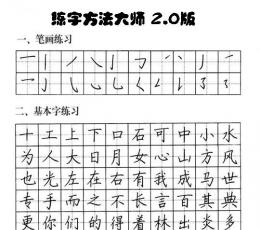 练字方法大师 2.0版
一、笔画练习
二、基本字练习
十工上下口石可中小水
为人大日月女心山方风
也光左在右有我成马世
专手而之不长言百其典
更你们的得着林出炎多